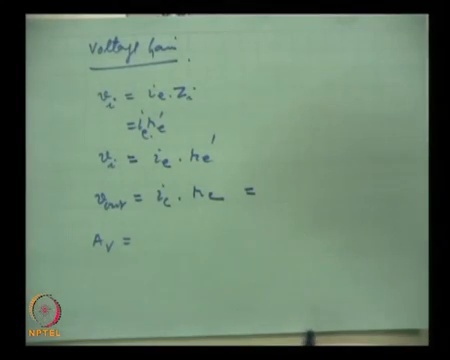 Voltage Gain.
v_i = i_e . Z_i
= i_e r_e'
v_i = i_e . r_e'
v_out = i_c . r_c =
A_v =
NPTEL